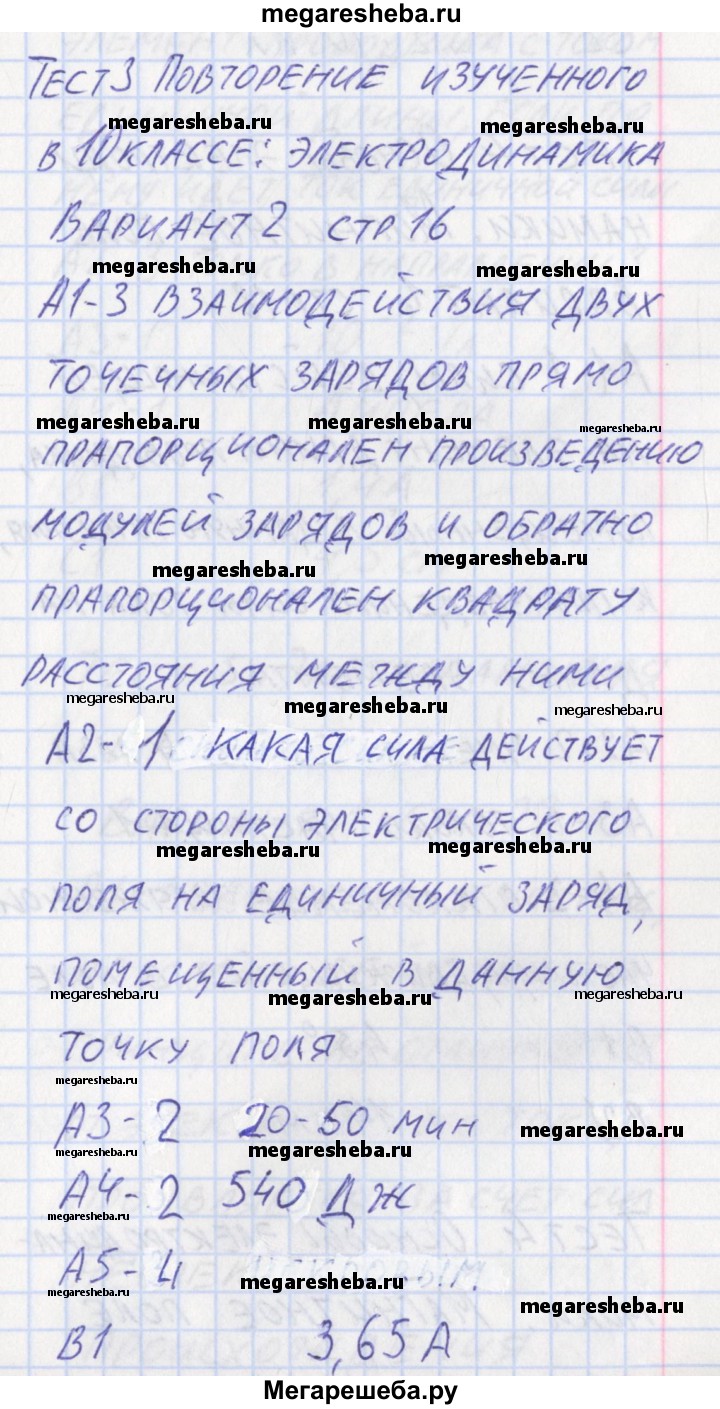 megaresheba.ru
ТЕСТ 3 ПОВТОРЕНИЕ ИЗУЧЕННОГО
megaresheba.ru megaresheba.ru
В 10 КЛАССЕ: ЭЛЕКТРОДИНАМИКА
ВАРИАНТ 2 СТР 16
megaresheba.ru megaresheba.ru
А1-3 ВЗАИМОДЕЙСТВИЯ ДВУХ
ТОЧЕЧНЫХ ЗАРЯДОВ ПРЯМО
megaresheba.ru megaresheba.ru megaresheba.ru
ПРАПОРЦИОНАЛЕН ПРОИЗВЕДЕНИЮ
МОДУЛЕЙ ЗАРЯДОВ И ОБРАТНО
megaresheba.ru megaresheba.ru
ПРАПОРЦИОНАЛЕН КВАДРАТУ
РАССТОЯНИЯ МЕЖДУ НИМИ
megaresheba.ru megaresheba.ru megaresheba.ru
А2-1 КАКАЯ СИЛА ДЕЙСТВУЕТ
СО СТОРОНЫ ЭЛЕКТРИЧЕСКОГО
megaresheba.ru megaresheba.ru
ПОЛЯ НА ЕДИНИЧНЫЙ ЗАРЯД,
ПОМЕЩЕННЫЙ В ДАННУЮ
megaresheba.ru megaresheba.ru megaresheba.ru
ТОЧКУ ПОЛЯ
megaresheba.ru
А3-2 20-50 МИН
megaresheba.ru
megaresheba.ru megaresheba.ru
А4-2 540 ДЖ
megaresheba.ru
А5-4
megaresheba.ru
megaresheba.ru megaresheba.ru
В1 3,65 А
Мегарешеба.ру